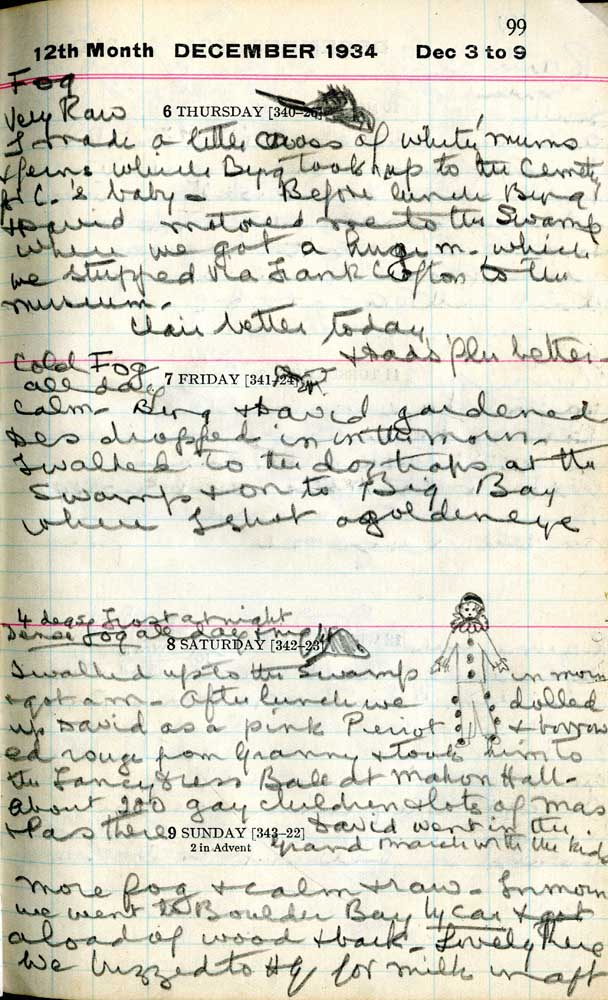 99
12th Month DECEMBER 1934 Dec 3 to 9
Fog
Very Raw
6 THURSDAY [340-26]
I made a little cross of white mums
& ferns which Berg took up to the Cemet'y
for C.'s baby - Before lunch Berg
& David motored me to the Swamp
where we got a huge m. which
we shipped via Frank Crofton to the
museum.
Clair better today
& Dads' flu better -
Cold Fog
all day
7 FRIDAY [341-24]
Calm - Berg & David gardened
Des dropped in in the morn -
I walked to the dog traps at the
Swamps & on to Big Bay
where I shot a goldeneye
4 degs frost at night
Dense fog all day & night
8 SATURDAY [342-23]
I walked up to the Swamp in morn
& got a m - After lunch we dolled
up David as a pink Pierrot & borrow
ed rouge from Granny & took him to
the Fancy Dress Ball at Mahon Hall -
About 200 gay children & lots of Mas
& Pas there
9 SUNDAY [343-22]
David went in the
2 in Advent
grand march with the kids
More fog & calm & raw - In morn
we went to Boulder Bay by car & got
a load of wood & bark - Lovely there
We buzzed to HQ for milk in aft